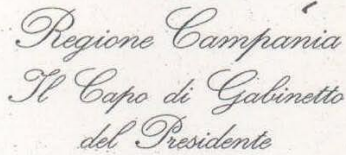 Regione Campania
Il Capo di Gabinetto
del Presidente